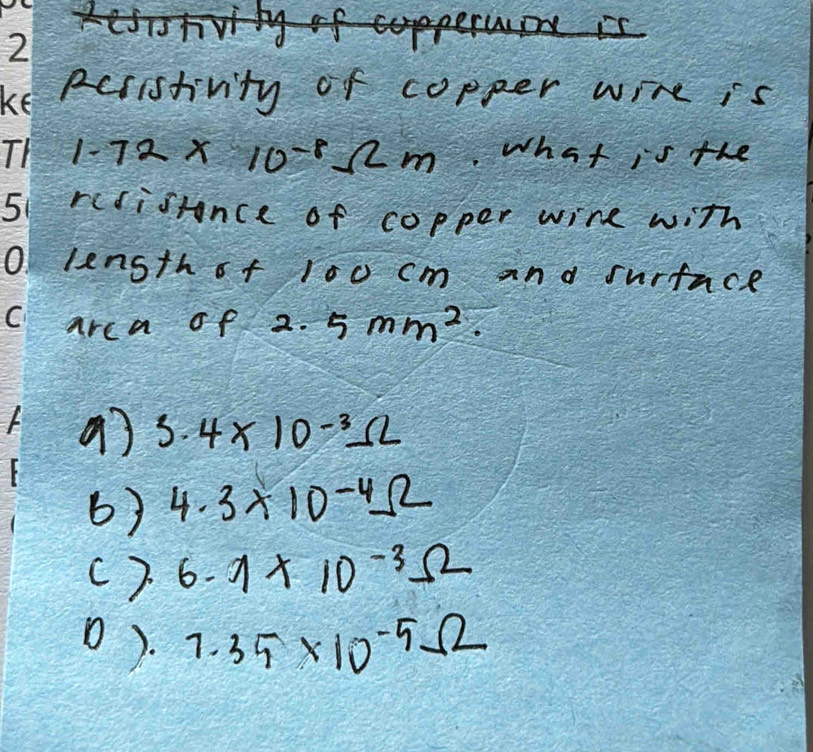 Resistivity of copperwire is
Resistivity of copper wire is
1.72 × 10⁻⁸ Ωm. What is the
resistance of copper wire with
length of 100 cm and surface
area of 2.5 mm².
a) 3.4 × 10⁻³ Ω
b) 4.3 × 10⁻⁴ Ω
c). 6.9 × 10⁻³ Ω
D). 7.35 × 10⁻⁵ Ω
2
ke
5
0
c